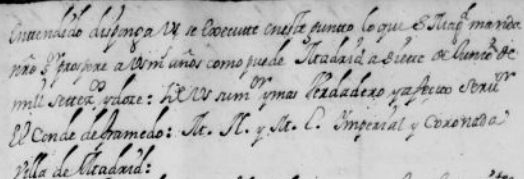 Entendido disponga VS se execute en este puntto lo que S Magd manda
nro Sr prospere a VS ms años como puede Madrid a siete de Junio de
mill settezs y doze: BLM VS su mor y mas verdadero y afecto servr
El Conde de Gramedo: M. N. y M. L. Imperial y Coronada
villa de Madrid: